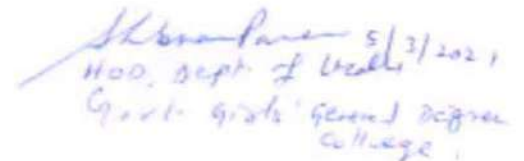 5/3/2021
HOD, Dept of
Govt. Girls' General Degree
College.